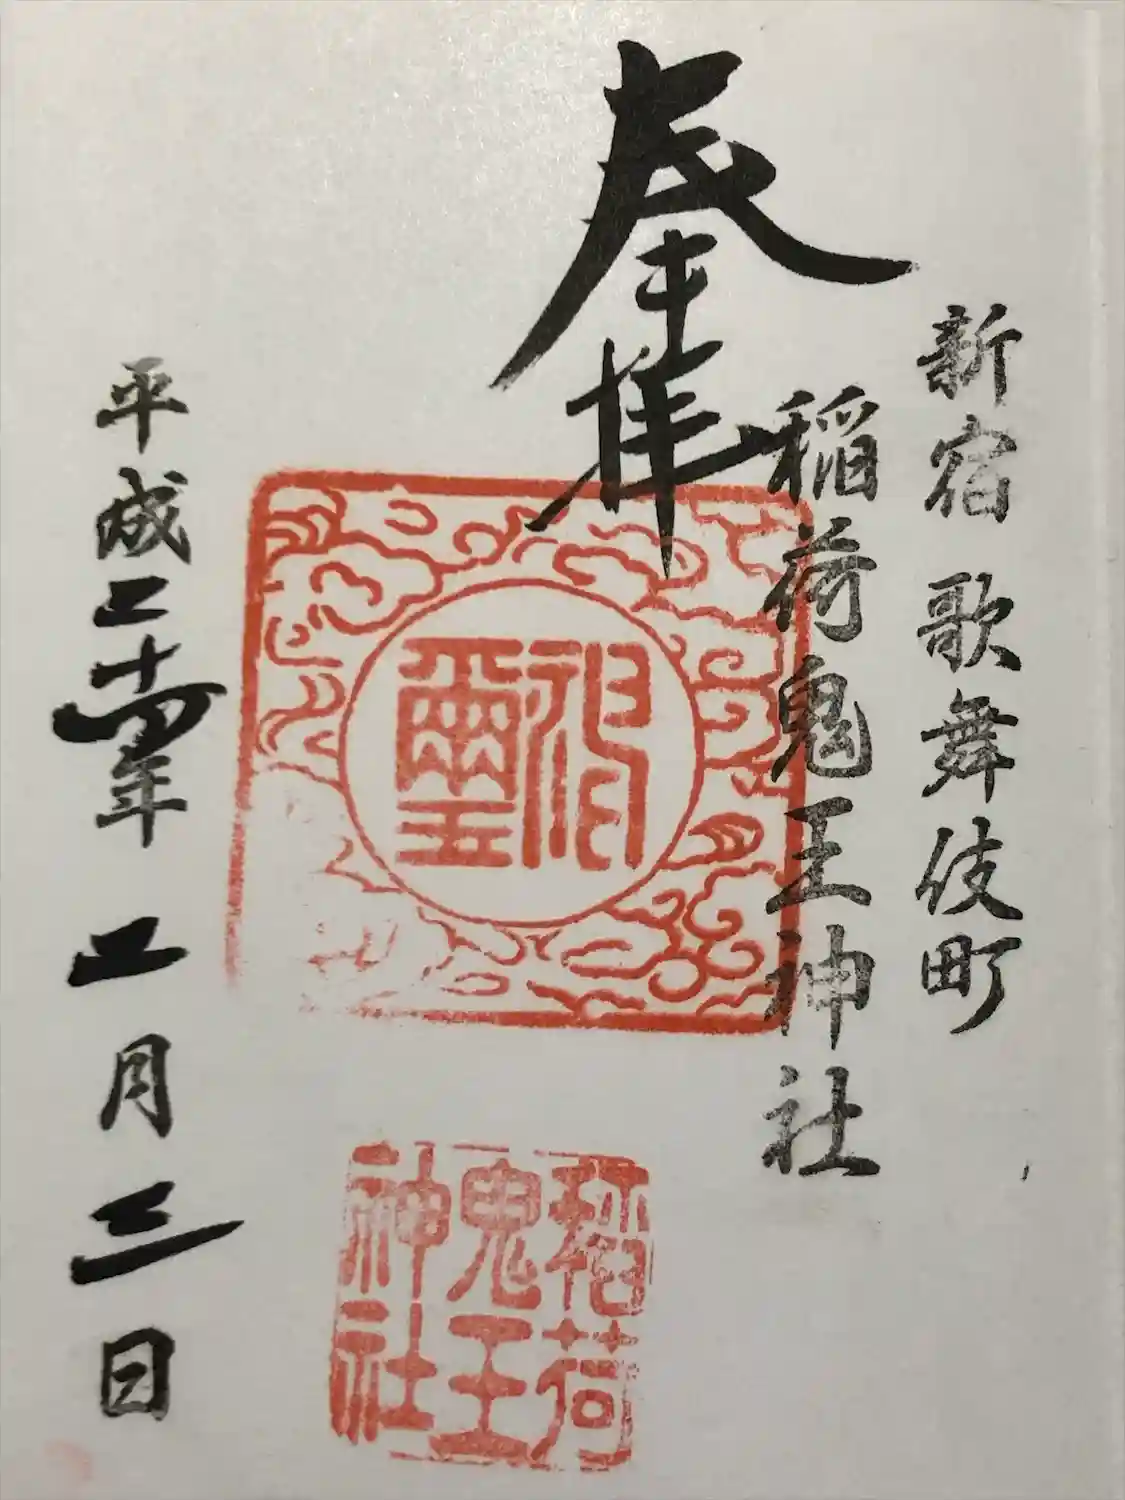 新宿歌舞伎町
稲荷鬼王神社
奉拝
稲荷
鬼王
神社
平成二十四年二月三日